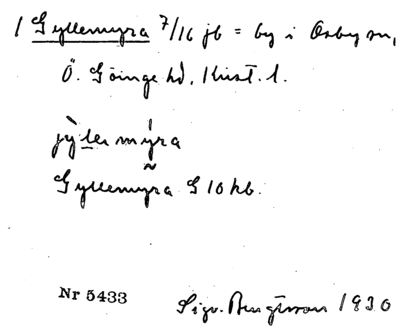 / Gyllemyra 7/16 jb = by i Osby sn,
Ö. Göinge hd, Krist. l.
jỳlemýra
Gyllemyra G 10 kb.
Nr 5433 Sigv. Bengtsson 1930